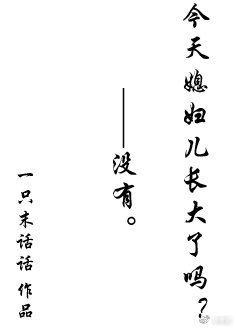 今天媳妇儿长大了吗？
——没有。
一只末话话 作品